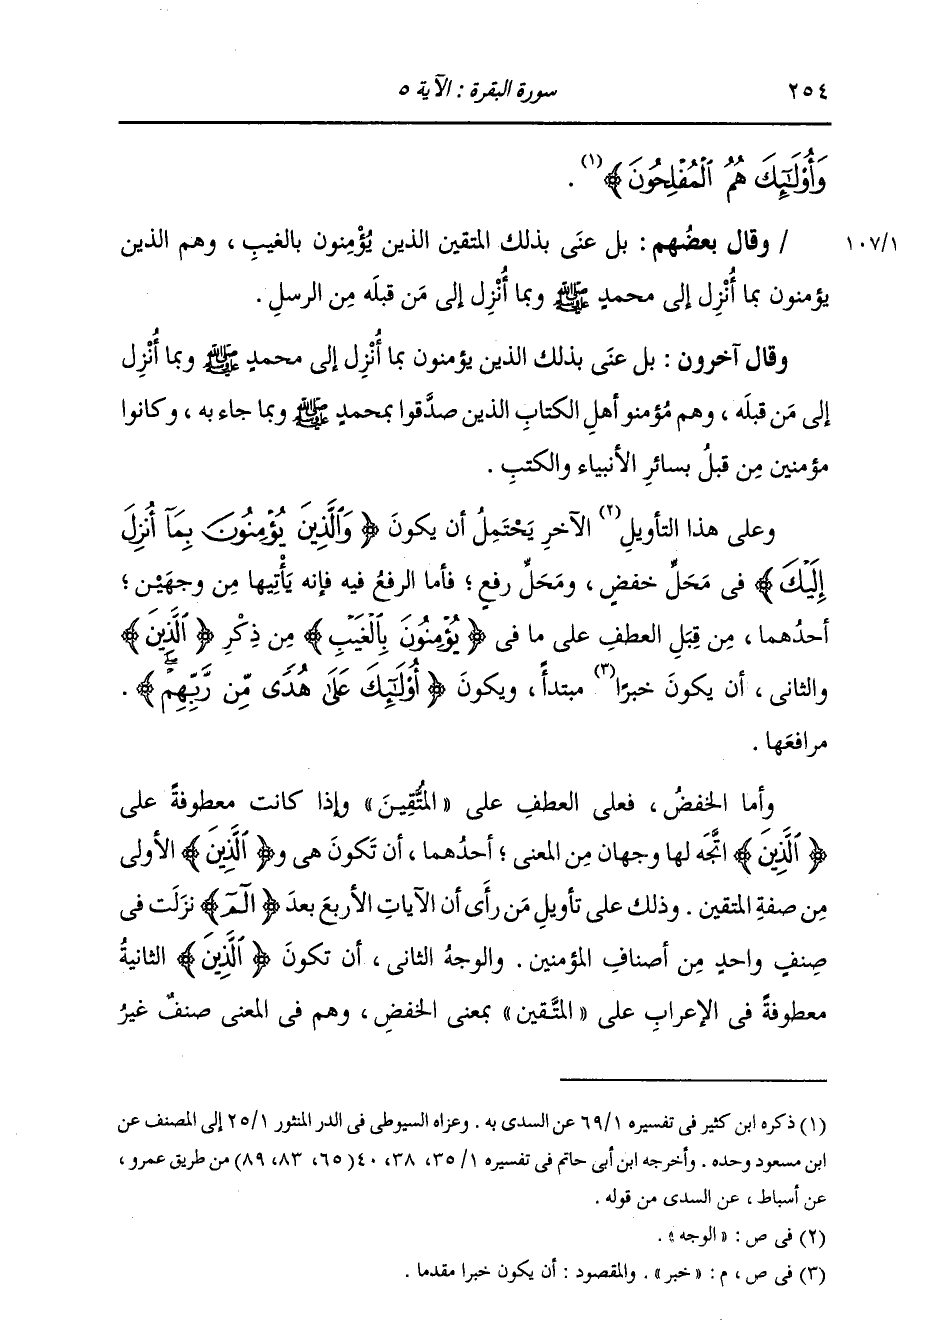 ٢٥٤ سورة البقرة : الآية ٥
وَأُوْلَٰٓئِكَ هُمُ ٱلْمُفْلِحُونَ﴾(١) .
١٠٧/١ / وقال بعضُهم : بل عنَى بذلك المتقين الذين يُؤْمِنون بالغيبِ ، وهم الذين
يؤمنون بما أُنْزِل إلى محمدٍ ﷺ وبما أُنْزِل إلى مَن قبلَه مِن الرسلِ .
وقال آخرون : بل عنَى بذلك الذين يؤمنون بما أُنْزِل إلى محمدٍ ﷺ وبما أُنْزِل
إلى مَن قبلَه ، وهم مُؤمنو أهلِ الكتابِ الذين صدَّقوا بمحمدٍ ﷺ وبما جاء به ، وكانوا
مؤمنين مِن قبلُ بسائرِ الأنبياء والكتبِ .
وعلى هذا التأويلِ(٢) الآخرِ يَحْتَمِلُ أن يكونَ ﴿ وَٱلَّذِينَ يُؤْمِنُونَ بِمَآ أُنزِلَ
إِلَيْكَ ﴾ فى مَحَلِّ خفضٍ ، ومَحَلِّ رفعٍ ؛ فأما الرفعُ فيه فإنه يَأْتِيها مِن وجهَيْن ؛
أحدُهما ، مِن قِبَلِ العطفِ على ما فى ﴿ يُؤْمِنُونَ بِٱلْغَيْبِ ﴾ مِن ذِكْرِ ﴿ ٱلَّذِينَ ﴾
والثانى ، أن يكونَ خبرًا(٣) مبتدأً ، ويكونَ ﴿ أُوْلَٰٓئِكَ عَلَىٰ هُدًى مِّن رَّبِّهِمْ ۖ ﴾ .
مرافعَها .
وأما الخفضُ ، فعلى العطفِ على « المُتَّقِينَ » وإذا كانت معطوفةً على
﴿ ٱلَّذِينَ ﴾ اتَّجَه لها وجهان مِن المعنى ؛ أحدُهما ، أن تَكونَ هى و﴿ ٱلَّذِينَ ﴾ الأولى
مِن صفةِ المتقين . وذلك على تأويلِ مَن رأَى أن الآياتِ الأربعَ بعدَ ﴿ الٓمٓ ﴾ نزَلَت فى
صِنفٍ واحدٍ مِن أصنافِ المؤمنين . والوجهُ الثانى ، أن تكونَ ﴿ ٱلَّذِينَ ﴾ الثانيةُ
معطوفةً فى الإعرابِ على « المتَّقين » بمعنى الخفضِ ، وهم فى المعنى صنفٌ غيرُ
(١) ذكره ابن كثير فى تفسيره ٦٩/١ عن السدى به . وعزاه السيوطى فى الدر المنثور ٢٥/١ إلى المصنف عن
ابن مسعود وحده . وأخرجه ابن أبى حاتم فى تفسيره ١/ ٣٥، ٣٨، ٤٠( ٦٥، ٨٣، ٨٩) من طريق عمرو ،
عن أسباط ، عن السدى من قوله .
(٢) فى ص : « الوجه » .
(٣) فى ص ، م : « خبر » . والمقصود : أن يكون خبرا مقدما .